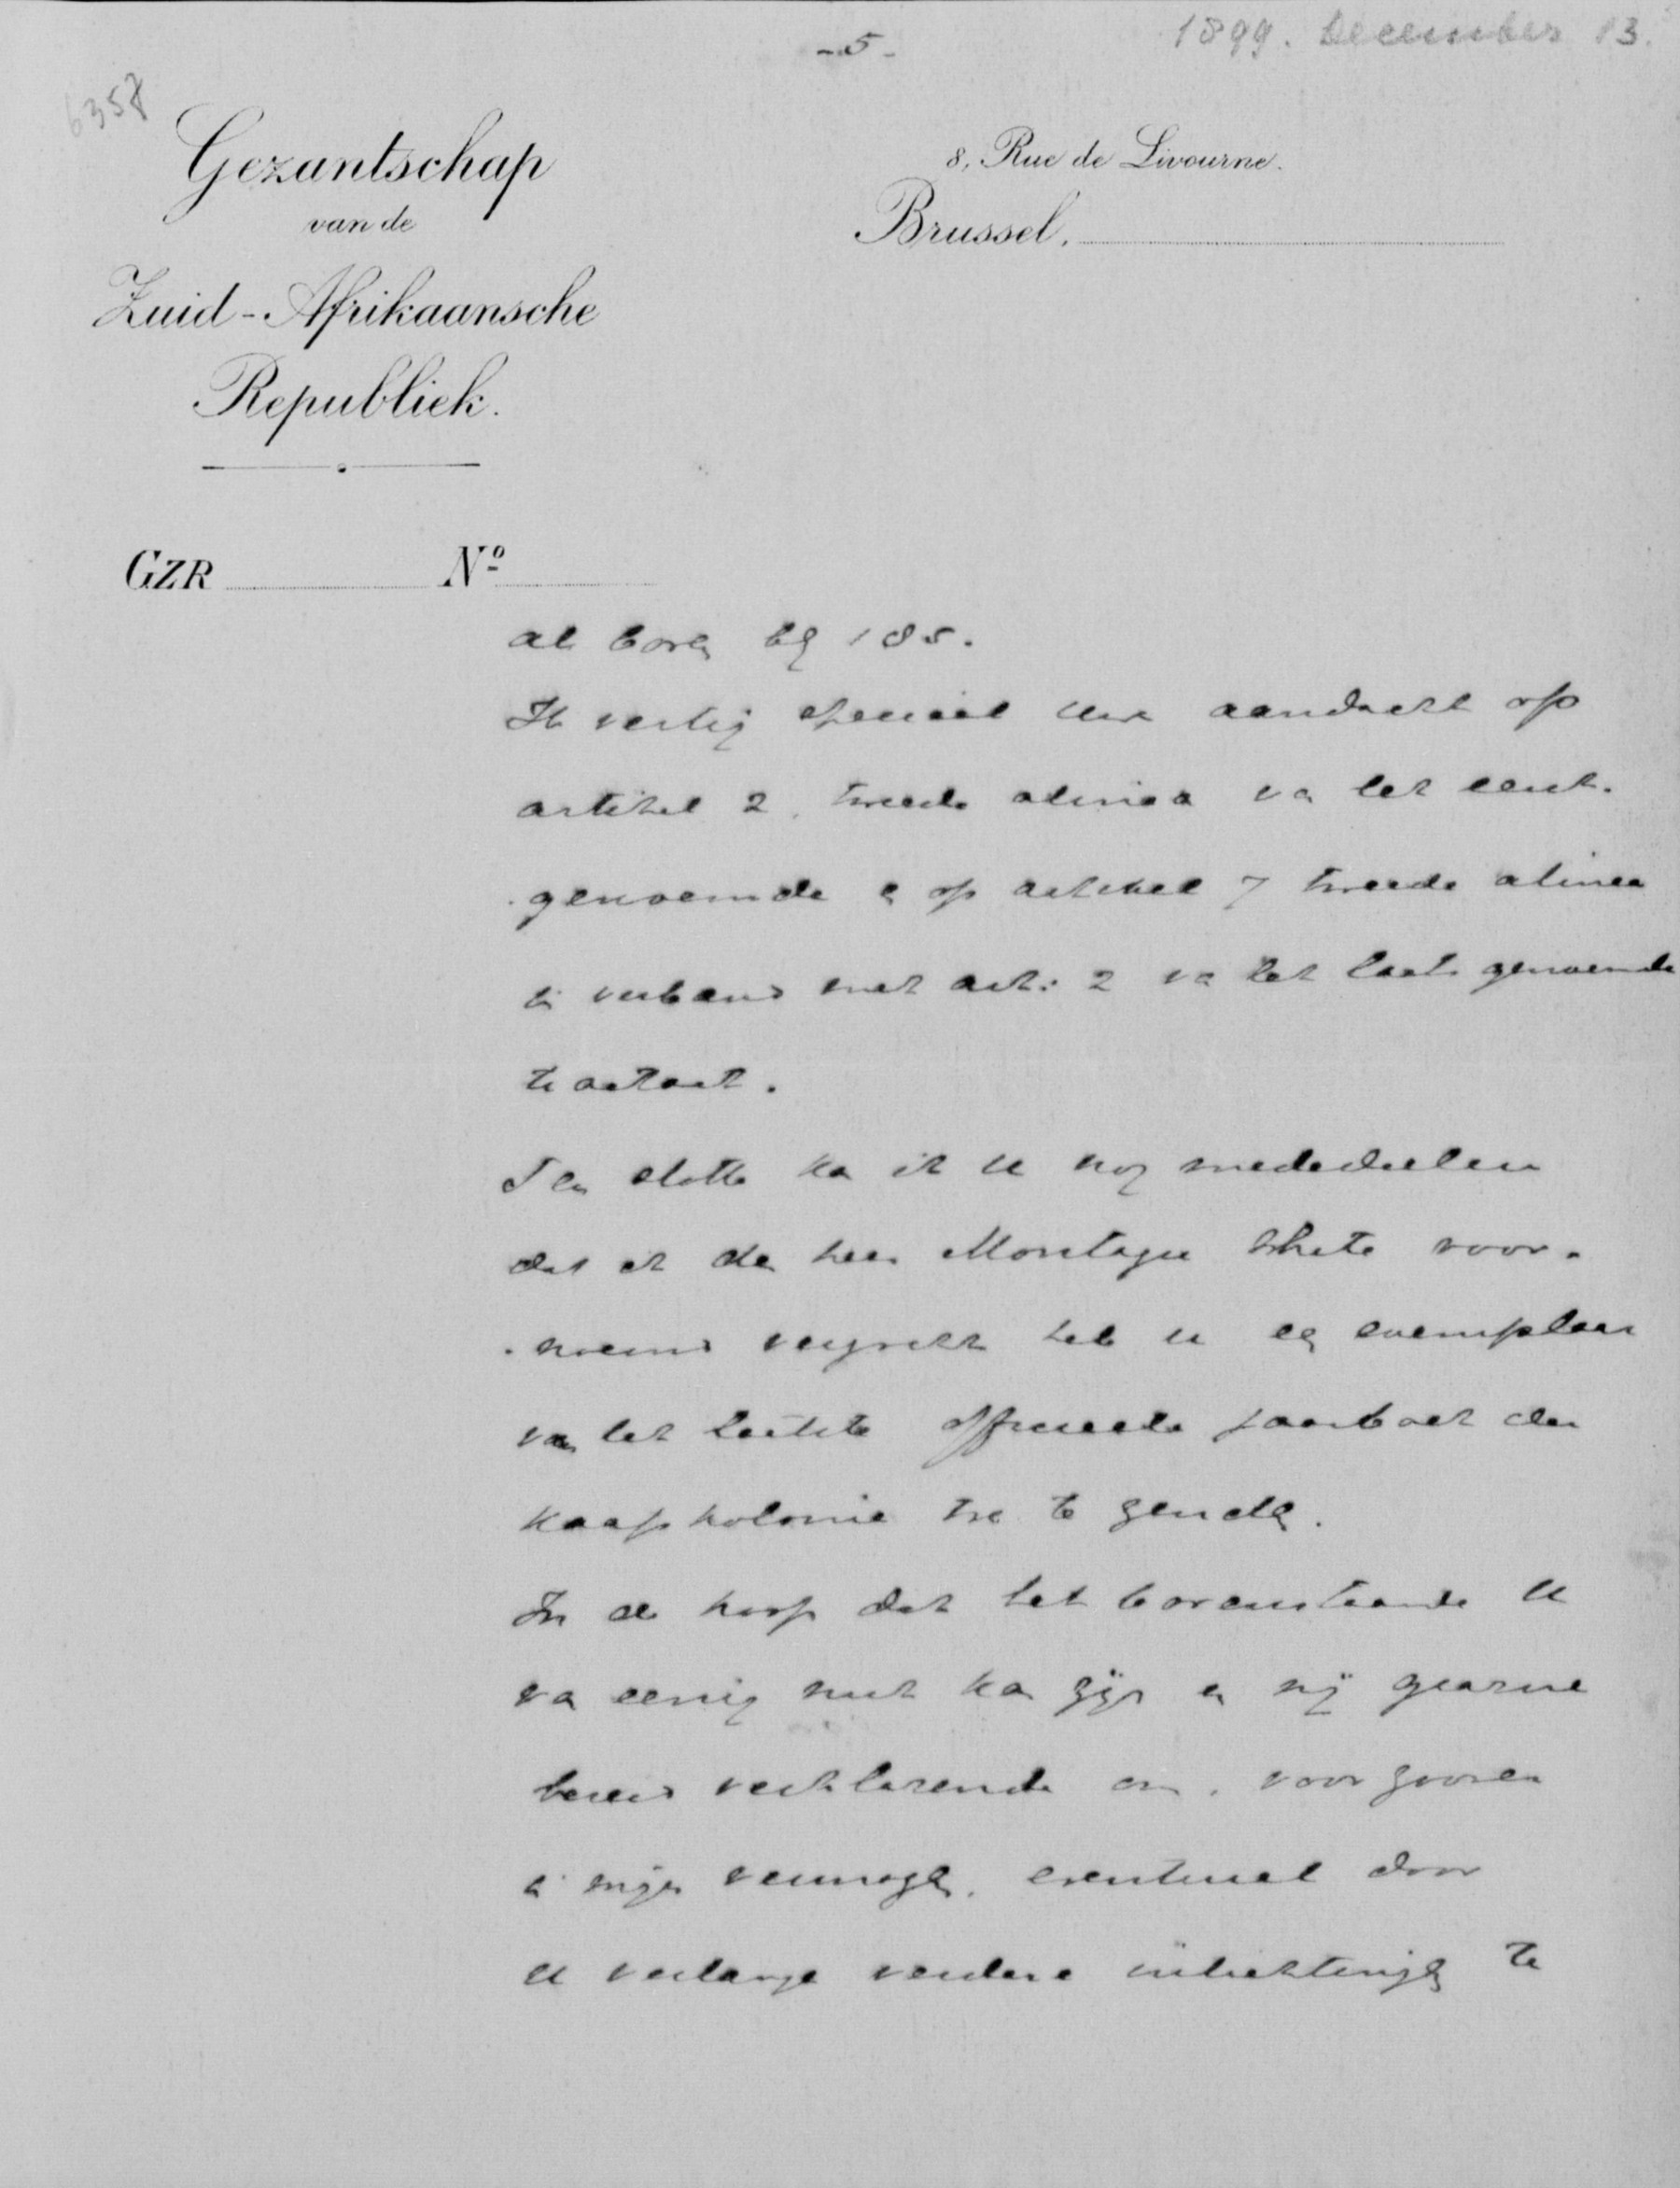 -5-
1899. December 13.
6358
Gezantschap
van de
Zuid-Afrikaansche
Republiek.
8, Rue de Livourne.
Brussel,
GZR Nº
als boven blz 185.
Ik vestig speciaal uwe aandacht op
artikel 2, tweede alinea van het eerst-
genoemde en op artikel 7 tweede alinea
in verband met art: 2 van het laatst genoemde
tractaat.
Ten slotte kan ik U nog mededeelen
dat ik den heer Montagu White voor-
noemd verzocht heb U een exemplaar
van het laatste officieele jaarboek der
Kaapkolonie toe te zenden.
In de hoop dat het bovenstaande U
van eenig nut kan zijn en mij gaarne
bereid verklarende om, voor zooveel
in mijn vermogen, eventueel door
U verlangde verdere inlichtingen te